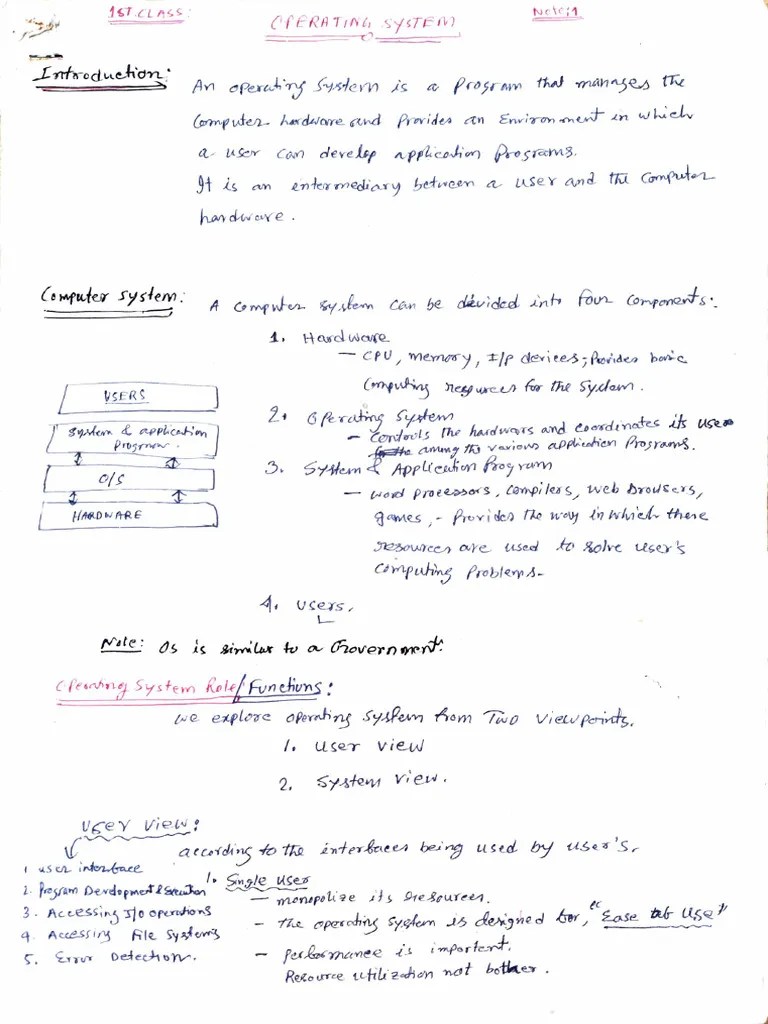 1ST. CLASS:
OPERATING SYSTEM
Note:1
Introduction:
An operating system is a program that manages the
computer hardware and provides an Environment in which
a user can develop application programs.
It is an entermediary between a user and the computer
hardware.
Computer system:
A computer system can be divided into four components:
1. Hardware
– CPU, memory, I/P devices; Provides basic
computing resources for the system.
2. Operating System
– Controls the hardware and coordinates its use
among the various application programs.
3. System & Application Program
– word processors, compilers, web browsers,
games, - Provides the way in which these
resources are used to solve user's
computing problems-
4. Users.
USERS
System & application
program.
O/S
HARDWARE
Note: OS is similar to a Government.
Operating System Role/Functions:
we explore operating system from Two Viewpoints.
1. User view
2. System view.
User view:
according to the interfaces being used by user's.
1 user interface
2. Program Development & Execution
3. Accessing I/O operations
4. Accessing File Systems
5. Error Detection.
1. Single User
– monopolize its resources.
– The operating system is designed for, "Ease of Use"
– performance is important.
Resource utilization not bother.